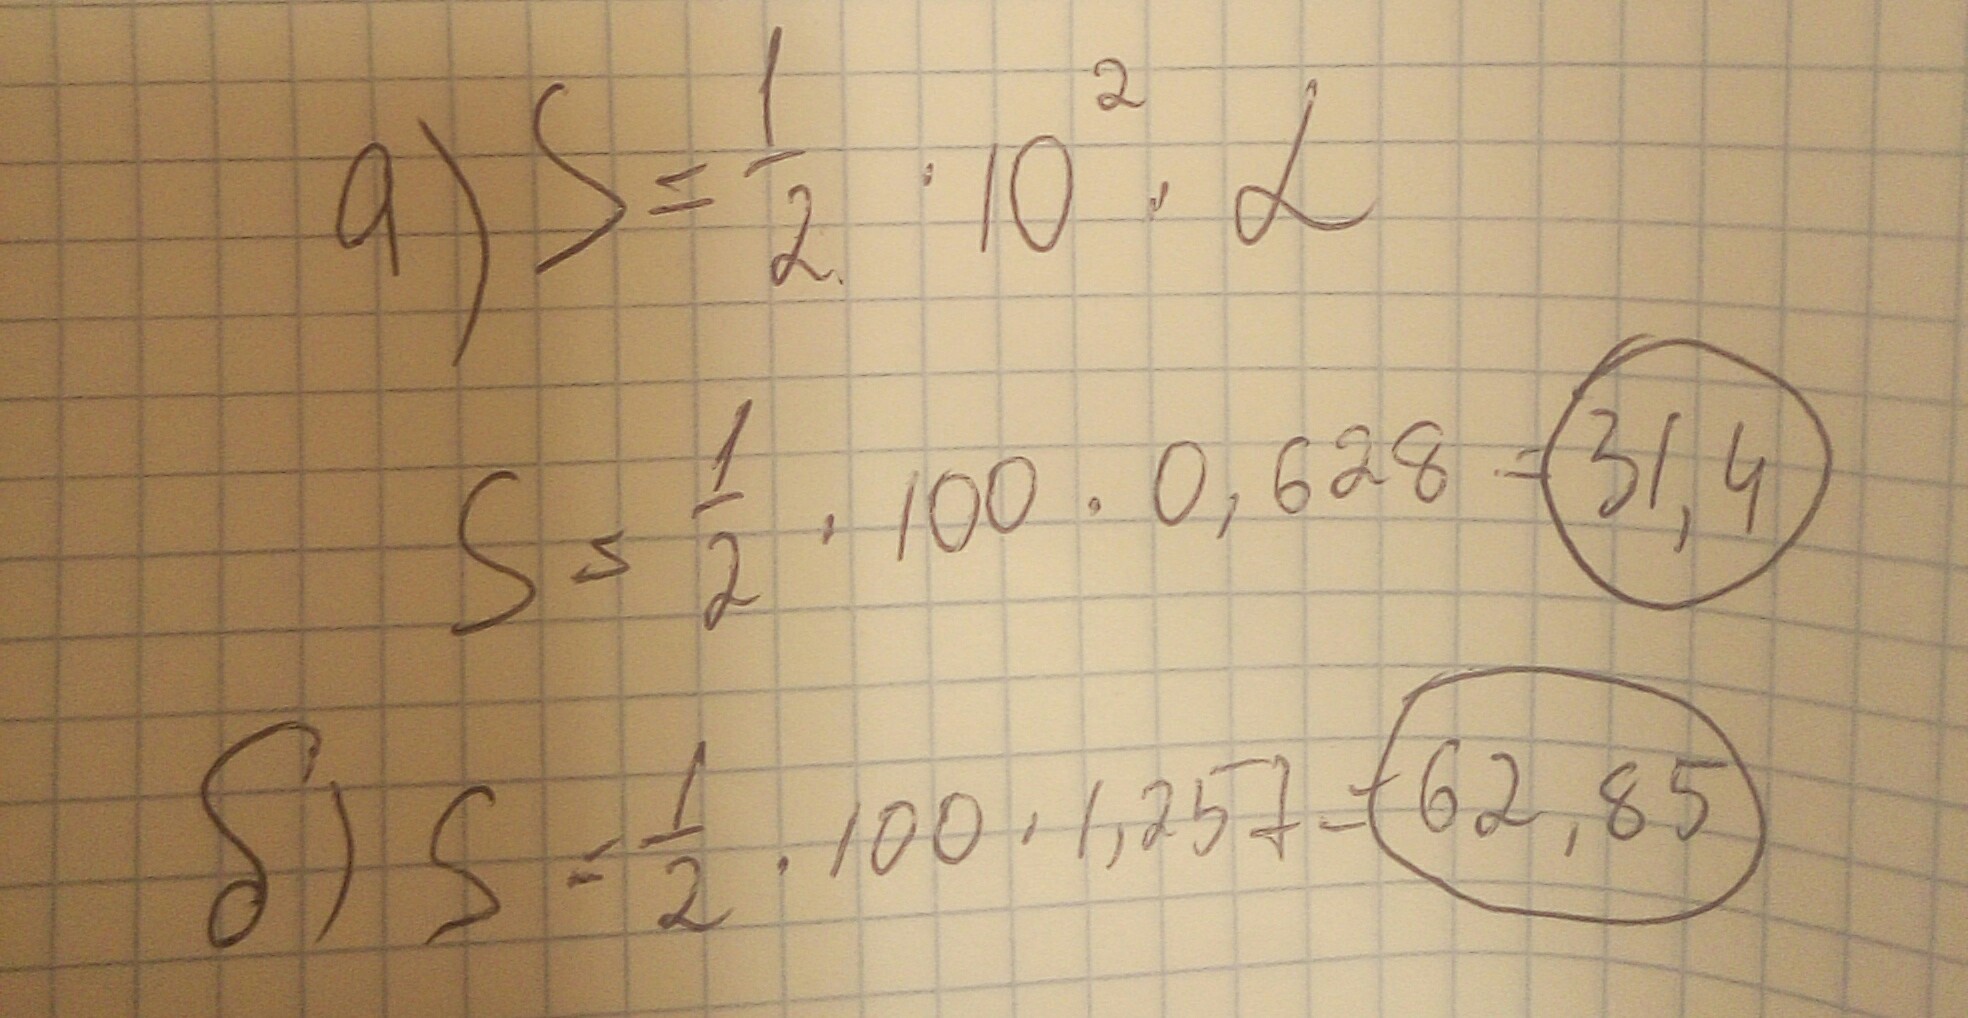 а) S = 1/2 · 10² · α
S = 1/2 · 100 · 0,628 = 31,4
б) S = 1/2 · 100 · 1,257 = 62,85